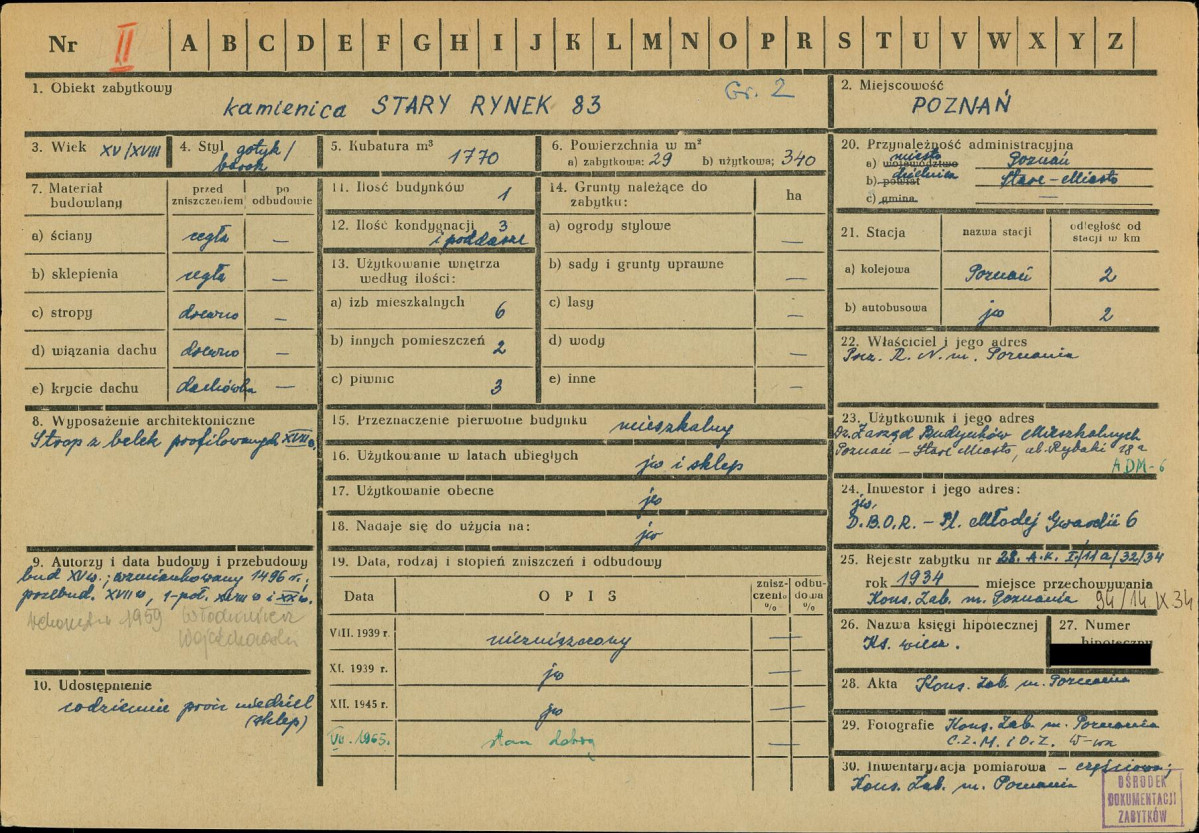 Nr II A B C D E F G H I J K L M N O P R S T U V W X Y Z
1. Obiekt zabytkowy
kamienica STARY RYNEK 83 Gr. 2
2. Miejscowość
POZNAŃ
3. Wiek XV/XVIII
4. Styl gotyk/
barok
5. Kubatura m³
1770
6. Powierzchnia w m²
a) zabytkowa: 29 b) użytkowa; 340
7. Materiał budowlany
przed zniszczeniem
po odbudowie
a) ściany cegła —
b) sklepienia cegła —
c) stropy drewno —
d) wiązania dachu drewno —
e) krycie dachu dachówka —
8. Wyposażenie architektoniczne
Strop z belek profilowanych XVIII w.
9. Autorzy i data budowy i przebudowy
bud XV w.; wzmiankowany 1496 r.;
przebud. XVII w, 1-poł. XVIII w i XX w.
1959 Włodzimierz
Wojciechowski
10. Udostępnienie
codziennie prócz niedziel
(sklep)
11. Ilość budynków 1
12. Ilość kondygnacji 3
i poddasze
13. Użytkowanie wnętrza
według ilości:
a) izb mieszkalnych 6
b) innych pomieszczeń 2
c) piwnic 3
14. Grunty należące do
zabytku:
ha
a) ogrody stylowe —
b) sady i grunty uprawne —
c) lasy —
d) wody —
e) inne —
15. Przeznaczenie pierwotne budynku mieszkalny
16. Użytkowanie w latach ubiegłych jw i sklep
17. Użytkowanie obecne jw
18. Nadaje się do użycia na: jw
19. Data, rodzaj i stopień zniszczeń i odbudowy
Data
OPIS
znisz-
czenie
%
odbu-
dowa
%
VIII. 1939 r. niezniszczony —
XI. 1939 r. jw —
XII. 1945 r. jw —
VI. 1965. stan dobry —
20. Przynależność administracyjna
miasto
a) województwo Poznań
dzielnica
b) powiat Stare-Miasto
c) gmina —
21. Stacja
nazwa stacji
odległość od
stacji w km
a) kolejowa Poznań 2
b) autobusowa jw 2
22. Właściciel i jego adres
Prez. R. N. m. Poznania
23. Użytkownik i jego adres
Dz. Zarząd Budynków Mieszkalnych
Poznań – Stare Miasto, ul. Rybaki 18a
ADM-6
24. Inwestor i jego adres:
jw,
D.B.O.R. – Pl. Młodej Gwardii 6
25. Rejestr zabytku nr 28. A.K. I/11a/32/34
rok 1934 miejsce przechowywania
Kons. Zab. m. Poznania 94/14 IX 34
26. Nazwa księgi hipotecznej
Ks. wiecz.
27. Numer
hipoteczny
28. Akta Kons. Zab. m. Poznania
29. Fotografie Kons. Zab. m. Poznania
C.Z.M. i O.Z. W-wa
30. Inwentaryzacja pomiarowa – częściowa;
Kons. Zab. m. Poznania
OŚRODEK
DOKUMENTACJI
ZABYTKÓW